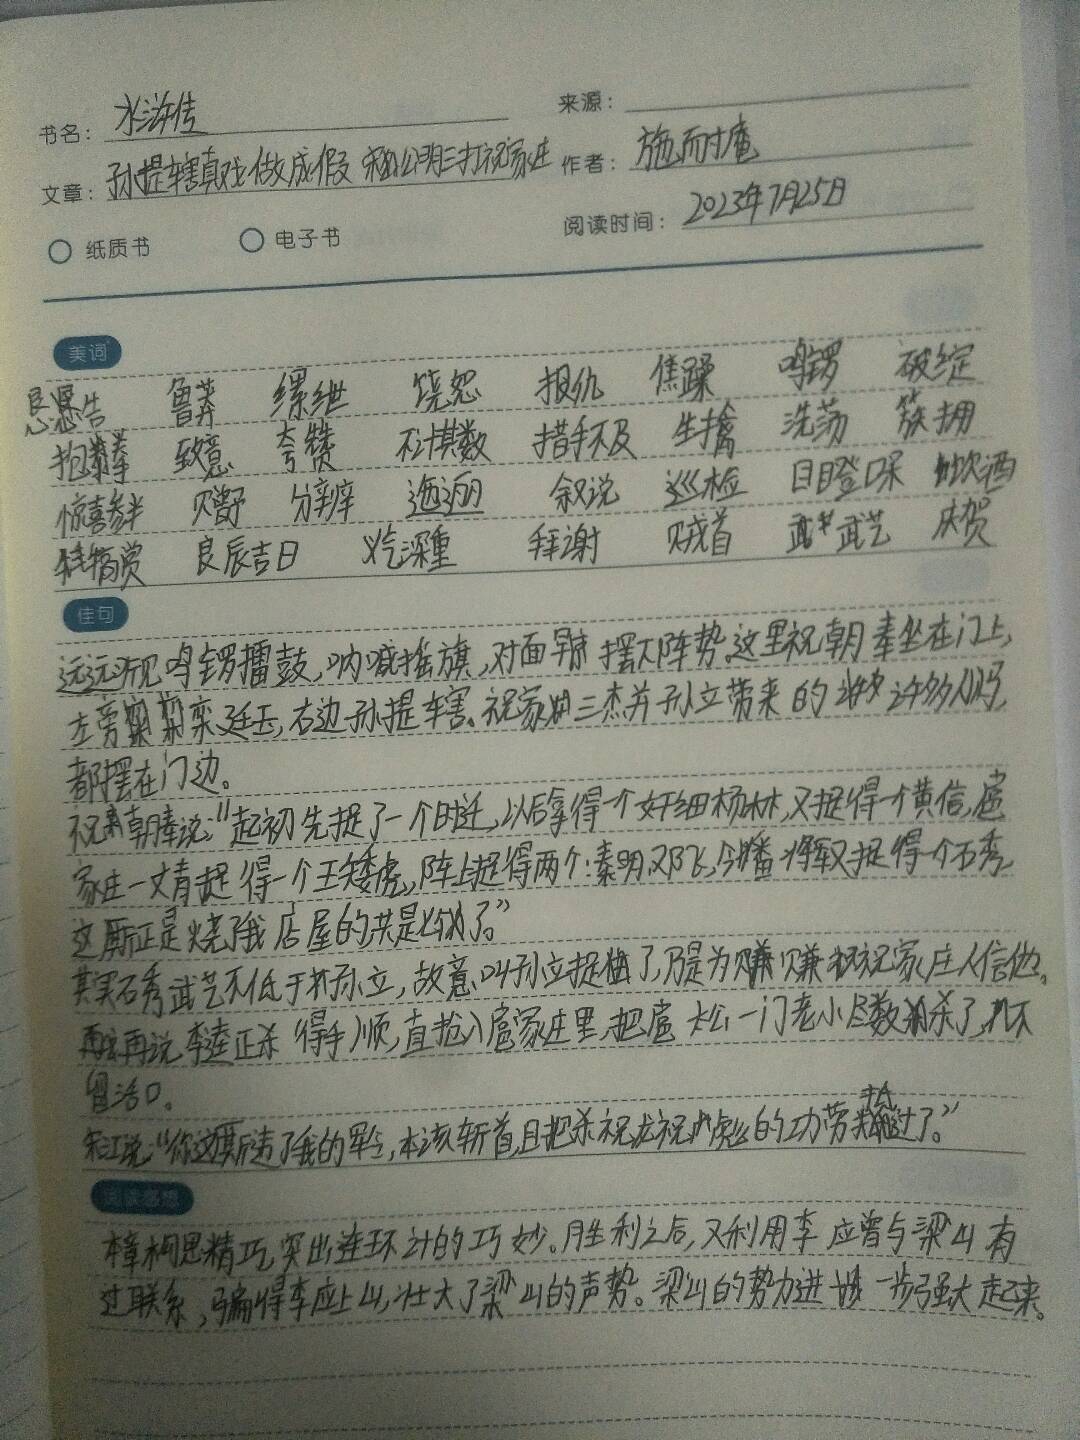 书名： 水浒传
来源：
文章： 孙提辖真戏做成假 宋公明三打祝家庄
作者： 施耐庵
纸质书 电子书
阅读时间： 2023年7月25日
美词
恳告 鲁莽 缧绁 饶恕 报仇 焦躁 鸣锣 破绽
抱拳 致意 夸赞 不计其数 措手不及 生擒 洗荡 簇拥
惊喜参半 赠 分辨 迤逦 叙说 巡检 目瞪口呆 饮酒
犒赏 良辰吉日 义气深重 拜谢 贼首 武艺 庆贺
佳句
远远听见鸣锣擂鼓，呐喊摇旗，对面早 摆下阵势。这里祝朝奉坐在门上，
左旁栾廷玉，右边孙提辖、祝家三杰并孙立带来的许多人马，
都摆在门边。
祝朝奉说：“起初先捉了一个时迁，以后拿得一个奸细杨林，又捉得一个黄信，扈
家庄一丈青捉得一个王矮虎，阵上捉得两个：秦明、邓飞，今番将军又捉得个石秀，
这厮正是烧了我店屋的。共是七个了。”
其实石秀武艺不低于孙立，故意叫孙立捉了，乃是为赚祝家庄人信他。
再说李逵正杀得手顺，直抢入扈家庄里，把扈太公一门老小尽数杀了，不
留活口。
宋江说：“你这厮违了我的军令，本该斩首，且把杀祝龙祝彪的功劳折过了。”
阅读感想
本章构思精巧，突出连环计的巧妙。胜利之后，又利用李应曾与梁山有
过联系，骗得李应上山，壮大了梁山的声势。梁山的势力进一步强大起来。